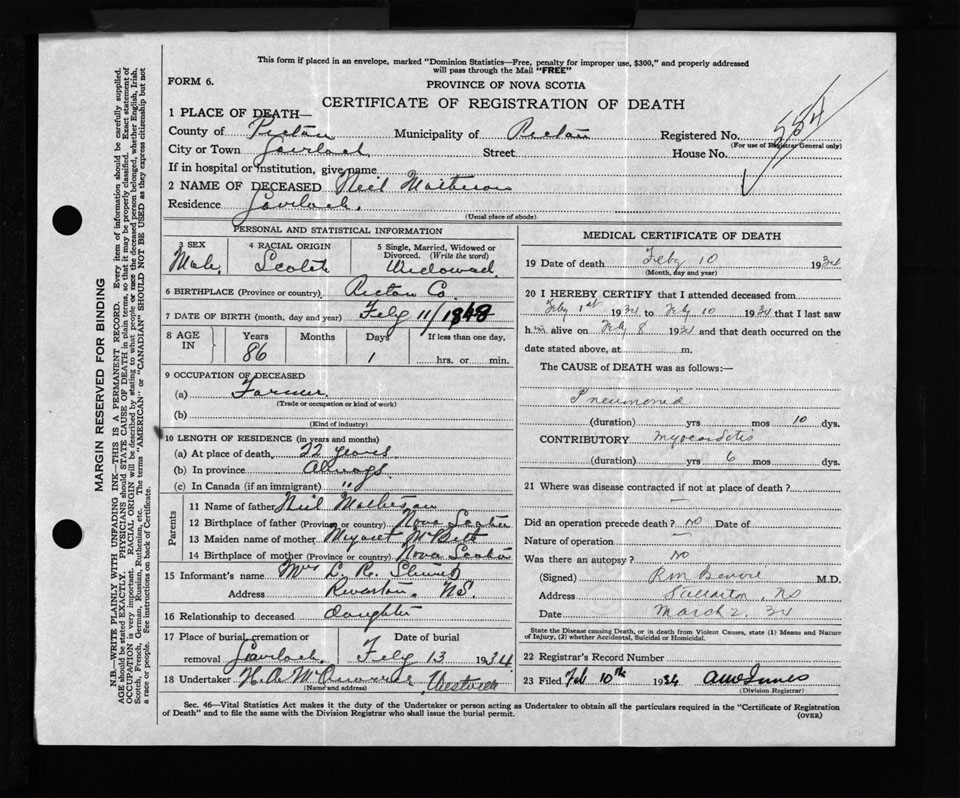 This form if placed in an envelope, marked "Dominion Statistics—Free, penalty for improper use, $300," and properly addressed
will pass through the Mail "FREE"
FORM 6.
PROVINCE OF NOVA SCOTIA
CERTIFICATE OF REGISTRATION OF DEATH
1 PLACE OF DEATH—
County of Pictou Municipality of Pictou Registered No. 554
(For use of Registrar General only)
City or Town Gairloch Street House No.
If in hospital or institution, give name
2 NAME OF DECEASED Neil Matheson
Residence Gairloch.
(Usual place of abode)
PERSONAL AND STATISTICAL INFORMATION
3 SEX 4 RACIAL ORIGIN 5 Single, Married, Widowed or
Divorced. (Write the word)
Male Scotch Widowed
6 BIRTHPLACE (Province or country) Pictou Co.
7 DATE OF BIRTH (month, day and year) Feby 11/1848
8 AGE IN Years Months Days If less than one day,
86 1 hrs. or min.
9 OCCUPATION OF DECEASED
(a) Farmer
(Trade or occupation or kind of work)
(b)
(Kind of industry)
10 LENGTH OF RESIDENCE (in years and months)
(a) At place of death, 22 years
(b) In province Always
(c) In Canada (if an immigrant) "
Parents
11 Name of father Neil Matheson
12 Birthplace of father (Province or country) Nova Scotia
13 Maiden name of mother Margaret McBeth
14 Birthplace of mother (Province or country) Nova Scotia
15 Informant's name Mrs R.
Address NS
16 Relationship to deceased daughter
17 Place of burial, cremation or Date of burial
removal Gairloch. Feby 13 1934
18 Undertaker H. A. Westville
(Name and address)
MEDICAL CERTIFICATE OF DEATH
19 Date of death Feby 10 1934
(Month, day and year)
20 I HEREBY CERTIFY that I attended deceased from
Feby 1st 1934 to Feby 10 1934 that I last saw
him alive on Feby 8 1934 and that death occurred on the
date stated above, at m.
The CAUSE of DEATH was as follows:—
Pneumonia
(duration) yrs mos 10 dys.
CONTRIBUTORY Myocarditis
(duration) yrs 6 mos dys.
21 Where was disease contracted if not at place of death?
Did an operation precede death? No Date of
Nature of operation
Was there an autopsy? No
(Signed) M.D.
Address Stellarton, NS
Date March 2, 34
State the Disease causing Death, or in death from Violent Causes, state (1) Means and Nature
of Injury, (2) whether Accidental, Suicidal or Homicidal.
22 Registrar's Record Number
23 Filed Feb 10th 1934 Innes
(Division Registrar)
Sec. 46—Vital Statistics Act makes it the duty of the Undertaker or person acting as Undertaker to obtain all the particulars required in the "Certificate of Registration
of Death" and to file the same with the Division Registrar who shall issue the burial permit.
(OVER)
MARGIN RESERVED FOR BINDING
N.B.—WRITE PLAINLY WITH UNFADING INK—THIS IS A PERMANENT RECORD. Every item of information should be carefully supplied.
AGE should be stated EXACTLY. PHYSICIANS should STATE CAUSE OF DEATH in plain terms, so that it may be properly classified. Exact statement of
OCCUPATION is very important. RACIAL ORIGIN will be described by stating to what people or race the deceased person belonged, whether English, Irish,
Scotch, French, German, Russian, Ruthenian, etc. The terms "AMERICAN" or "CANADIAN" SHOULD NOT BE USED as they express citizenship but not
a race or people. See instructions on back of Certificate.